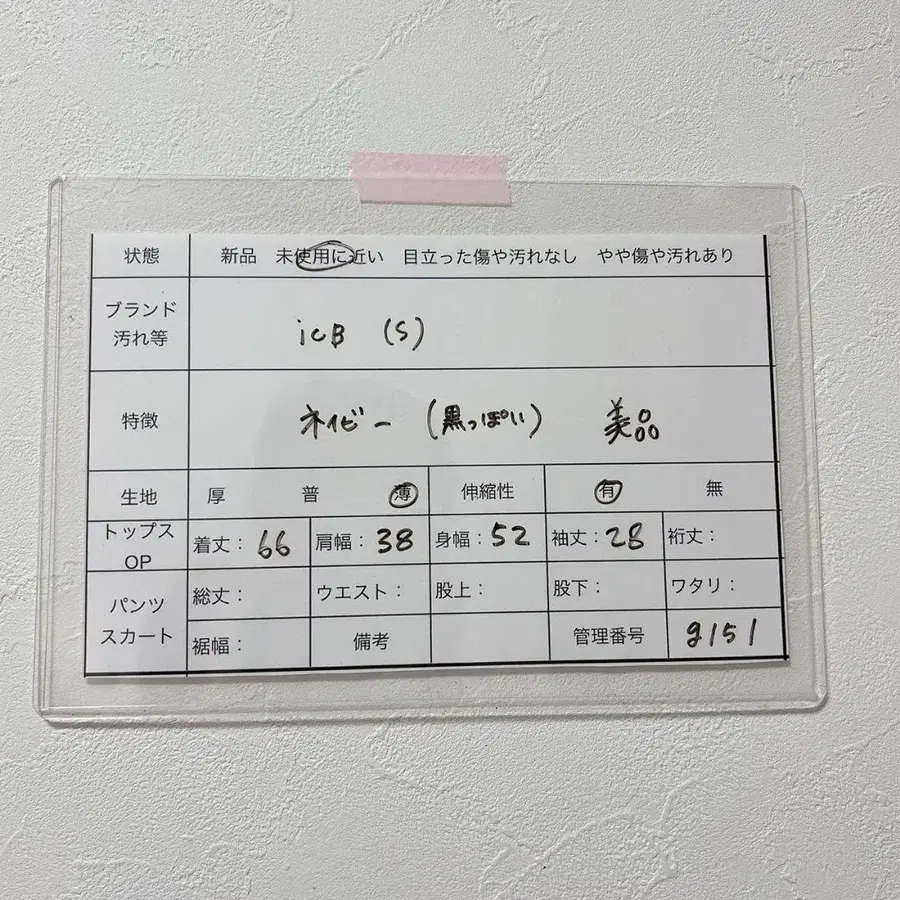 状態 新品 未使用に近い 目立った傷や汚れなし やや傷や汚れあり
ブランド
汚れ等
icB (S)
特徴 ネイビー (黒っぽい) 美品
生地 厚 普 薄 伸縮性 有 無
トップス
OP
着丈：66 肩幅：38 身幅：52 袖丈：28 裄丈：
パンツ
スカート
総丈： ウエスト： 股上： 股下： ワタリ：
裾幅： 備考 管理番号 g151